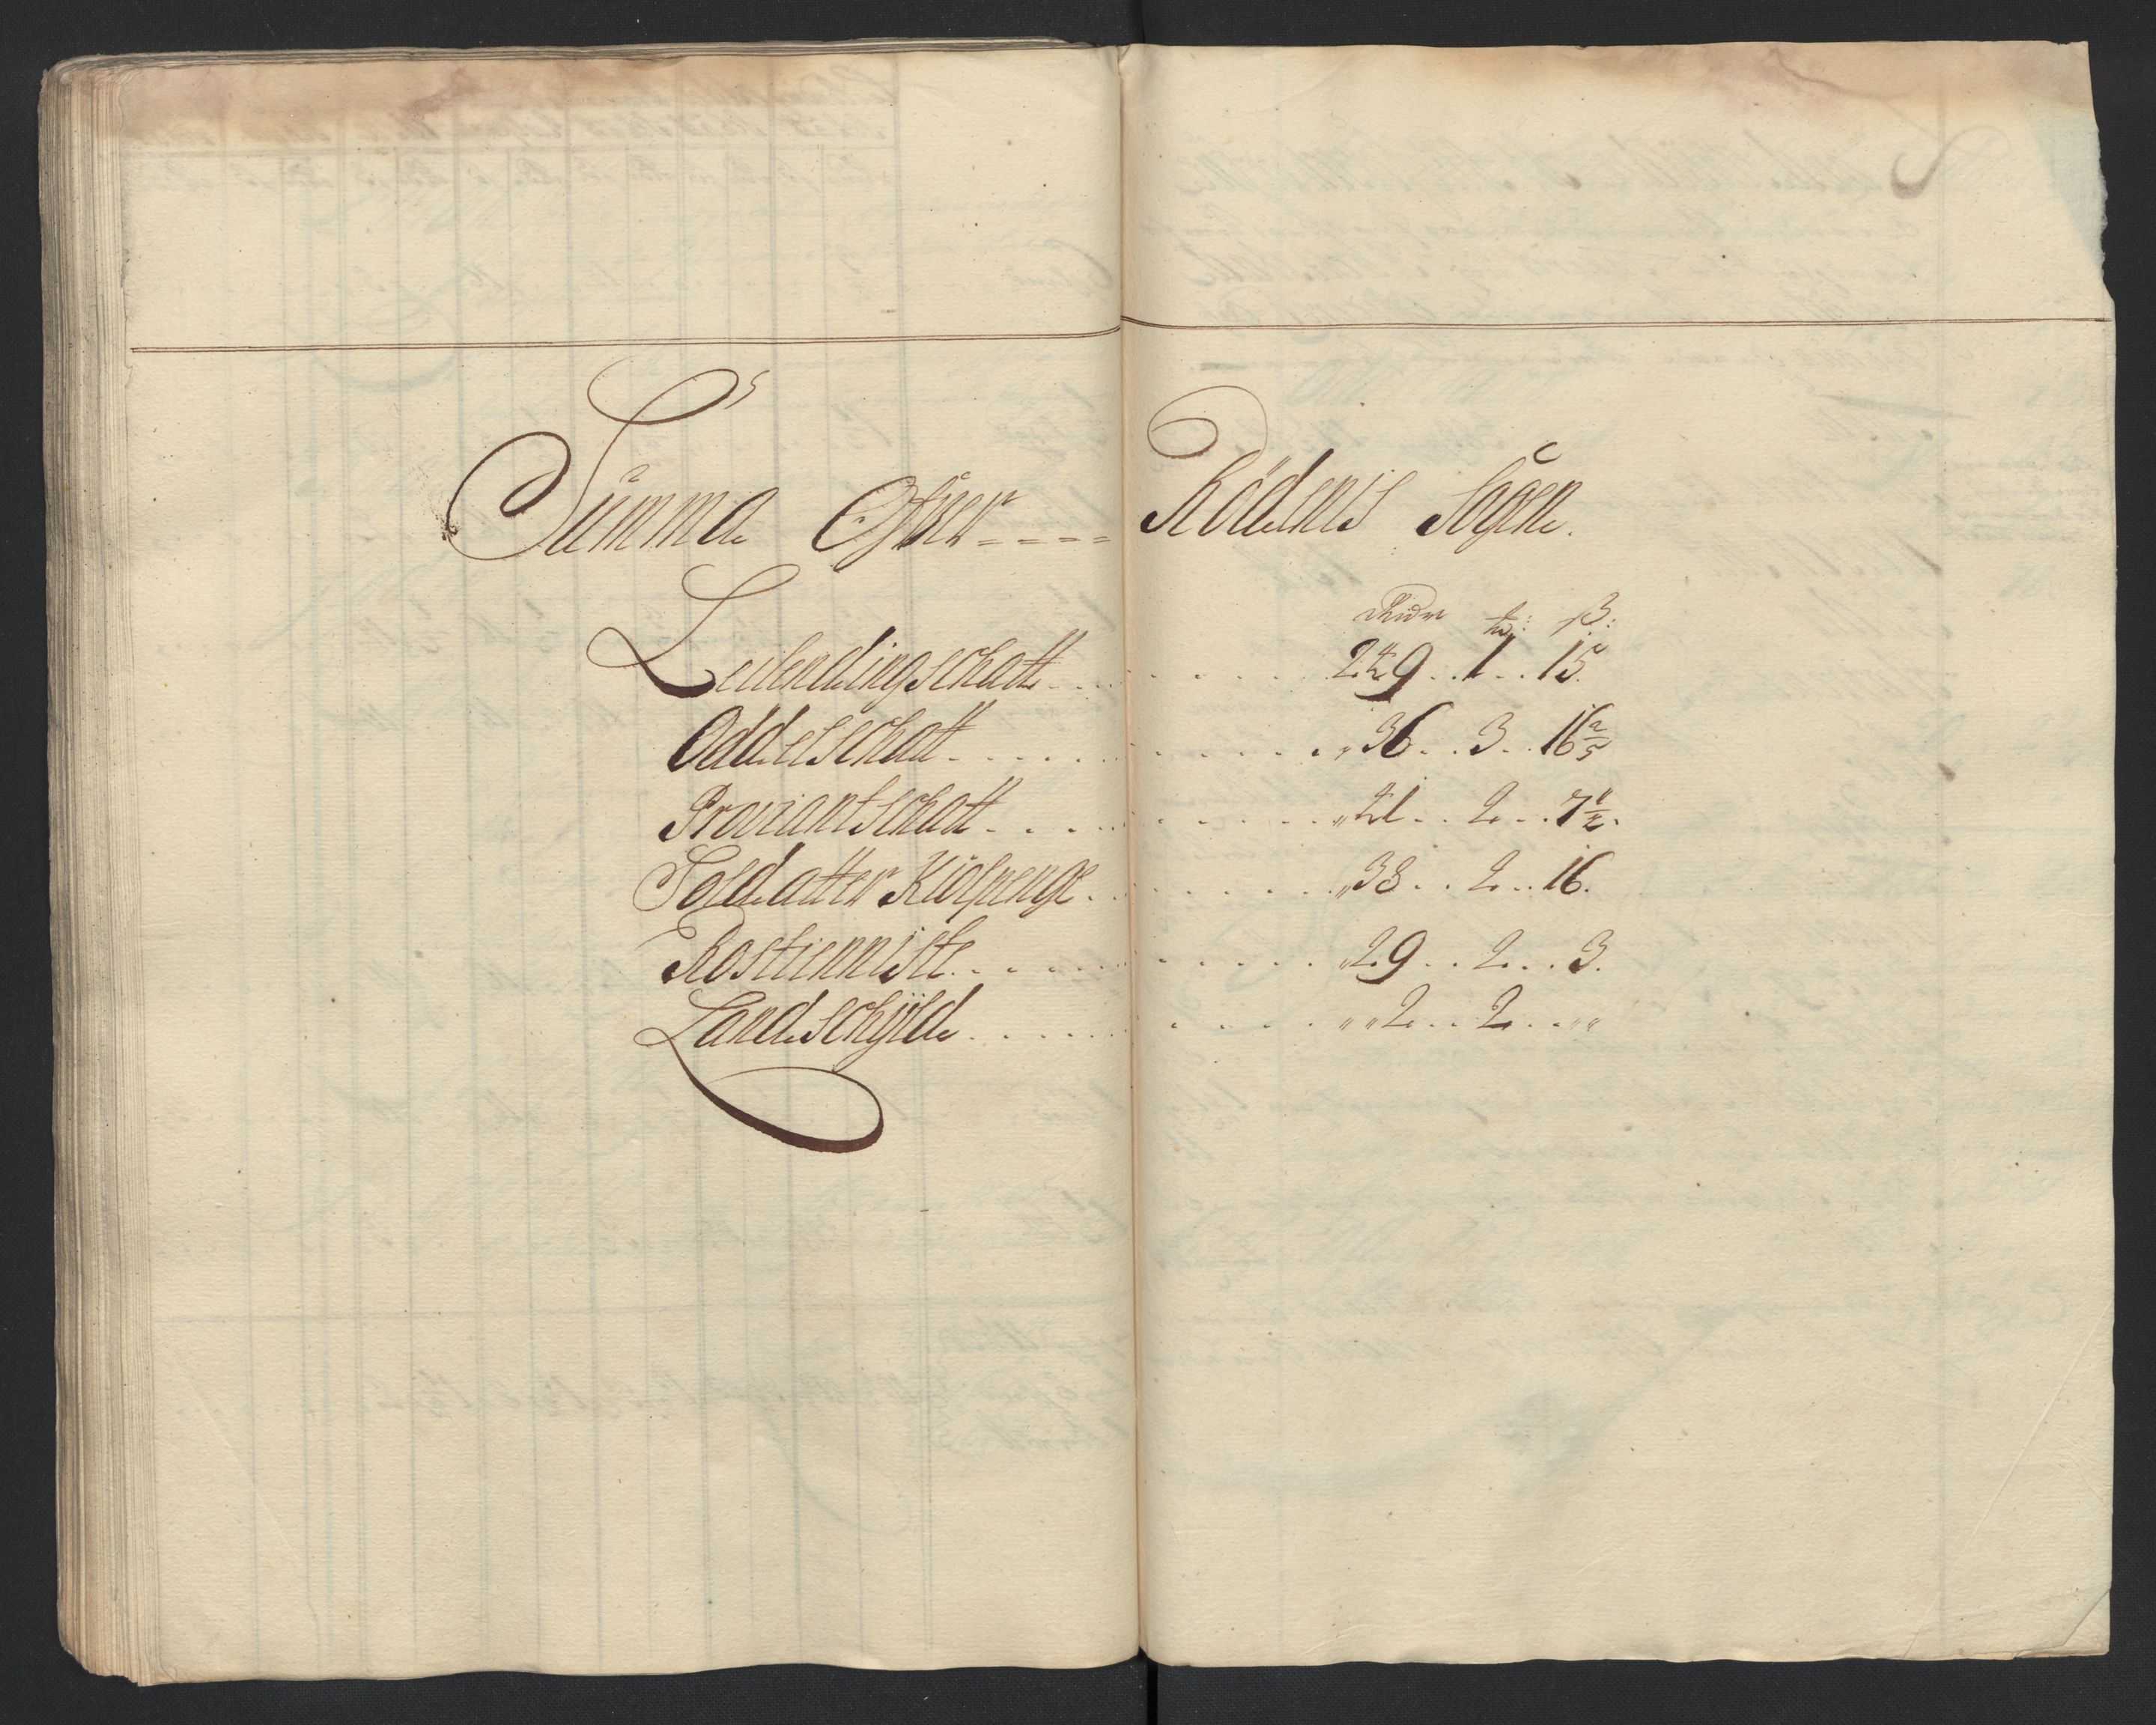 Summa Ofver ---- Rödenis Sogen.
Rixdr ꝑ: ß:
Leilendingschatt . . . 249 . . 1 . . 15.
Oddelschatt . . . . „36 . . 3 . . 16 2/5
Proviantschatt . . . . „41 . . 2 . . 7 1/2.
Soldatter Kiolpenge . . . „38 . . 2 . . 16.
Rostienniste . . . . „29 . . 2 . . . 3.
Landschÿld . . . . „„2 . . 2 . . „„